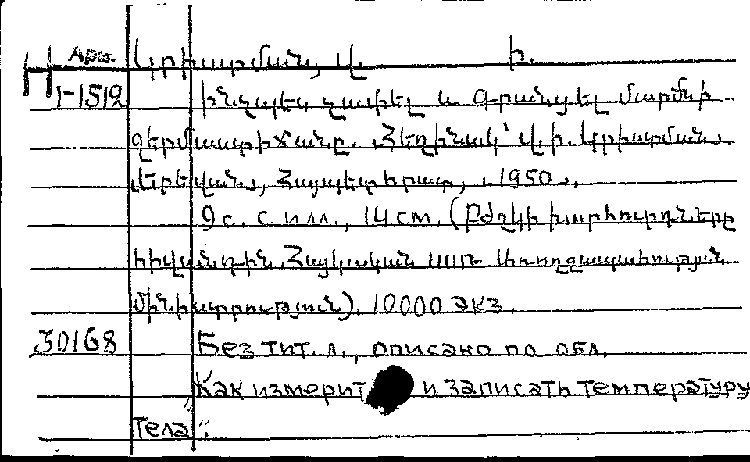 Арм. Կրիստման, Վ. Ի.
1-1512 Ինչպես չափել և գրանցել մարմնի
ջերմաստիճանը. Հեղինակ՝ Վ. Ի. Կրիստման.
Երևան, Հայպետհրատ, 1950.
9 с. с илл., 14 см. (Բժշկի խորհուրդները
հիվանդին. Հայկական ՍՍՌ Առողջապահության
մինիստրություն). 10000 экз.
30168 Без тит. л., описано по обл.
Как измерит и записать температуру
тела.